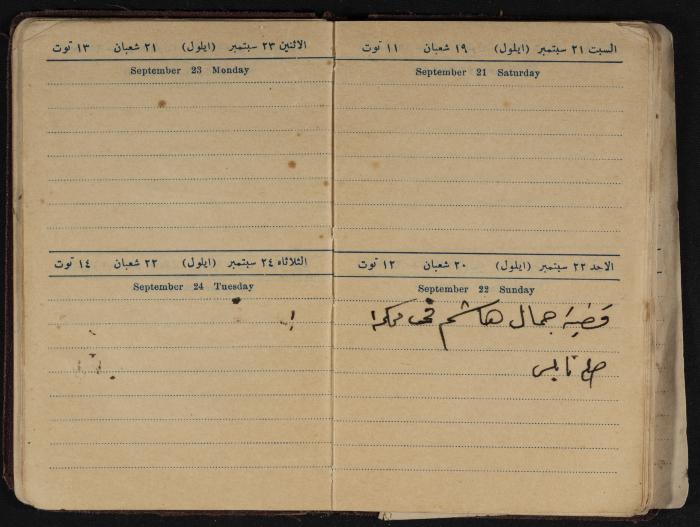 السبت ٢١ سبتمبر (ايلول) ١٩ شعبان ١١ توت
September 21 Saturday
الاحد ٢٢ سبتمبر (ايلول) ٢٠ شعبان ١٢ توت
September 22 Sunday
قضية جمال هاشم في محكمة
صلح نابلس
الاثنين ٢٣ سبتمبر (ايلول) ٢١ شعبان ١٣ توت
September 23 Monday
الثلاثاء ٢٤ سبتمبر (ايلول) ٢٢ شعبان ١٤ توت
September 24 Tuesday